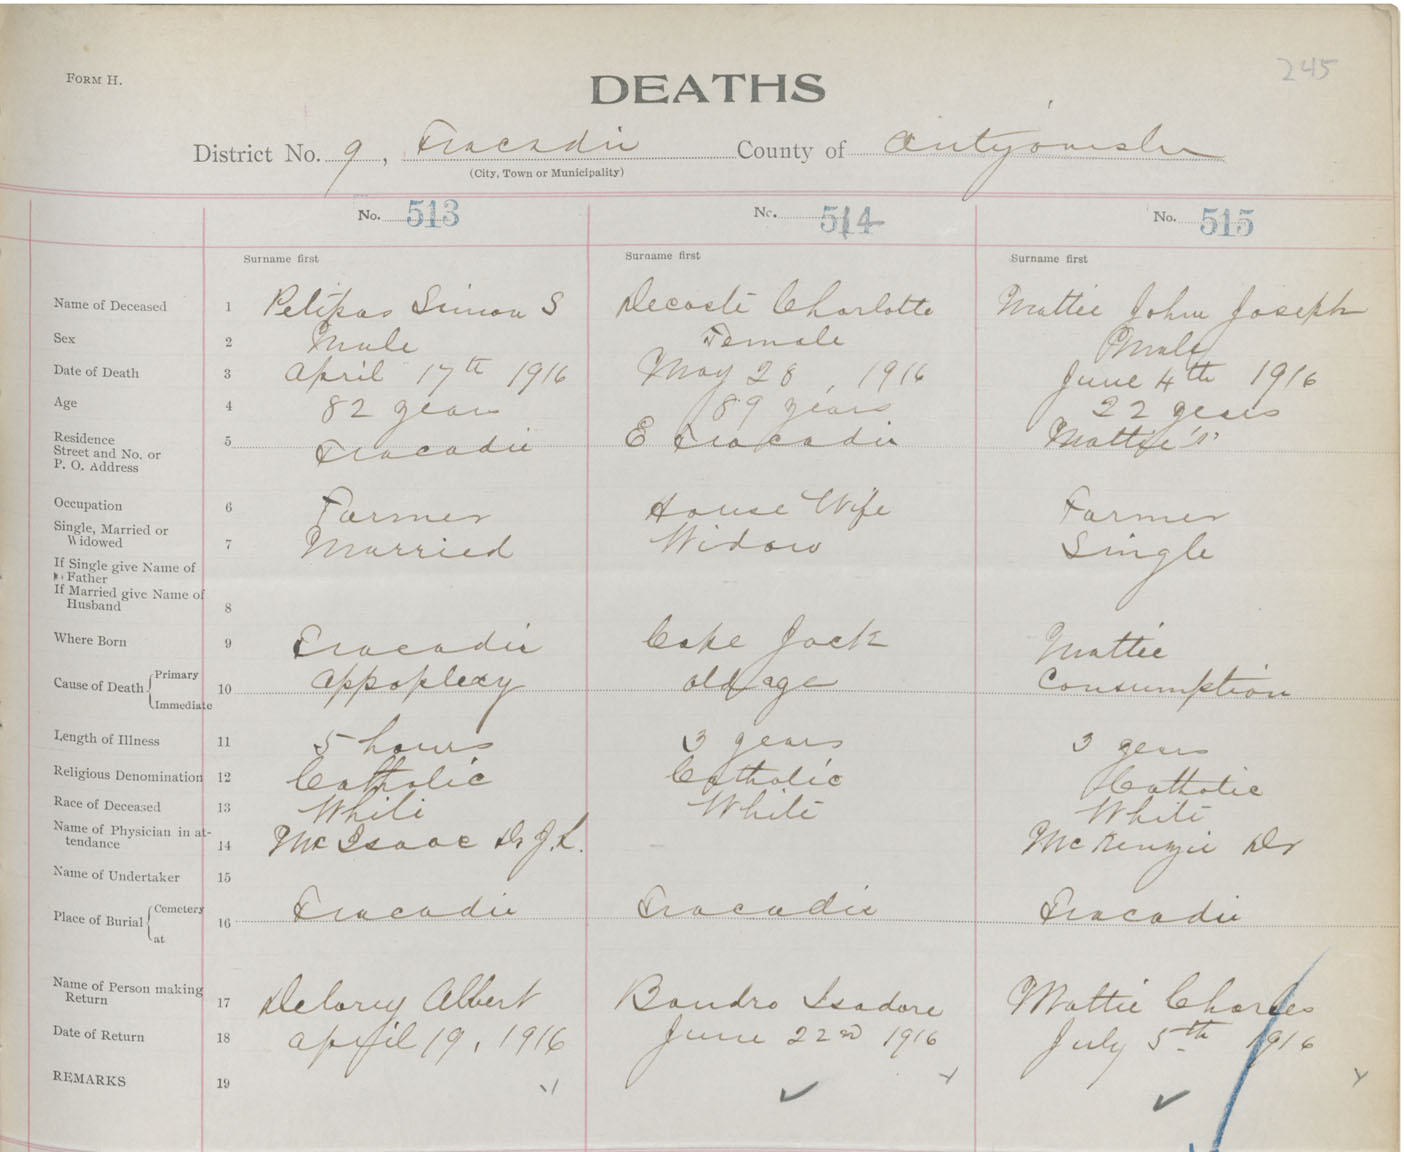 FORM H.
245
DEATHS
District No. 9, Tracadie County of Antigonish
(City, Town or Municipality)
No. 513 No. 514 No. 515
Surname first Surname first Surname first
Name of Deceased 1 Petipas Simon S Decoste Charlotte Mattie John Joseph
Sex 2 Male Female Male
Date of Death 3 April 17th 1916 May 28, 1916 June 4th 1916
Age 4 82 years 89 years 22 years
Residence
Street and No. or
P. O. Address 5 Tracadie E Tracadie Mattie's
Occupation 6 Farmer House Wife Farmer
Single, Married or
Widowed 7 Married Widow Single
If Single give Name of
Father
If Married give Name of
Husband 8
Where Born 9 Tracadie Cape Jack Mattie
Cause of Death Primary
Immediate 10 Appoplexy old age Consumption
Length of Illness 11 5 hours 3 years 3 years
Religious Denomination 12 Catholic Catholic Catholic
Race of Deceased 13 White White White
Name of Physician in at-
tendance 14 McIsaac Dr J.L. McKenzie Dr
Name of Undertaker 15
Place of Burial Cemetery
at 16 Tracadie Tracadie Tracadie
Name of Person making
Return 17 Delorey Albert Boudro Isadore Mattie Charles
Date of Return 18 April 19, 1916 June 22nd 1916 July 5th 1916
REMARKS 19